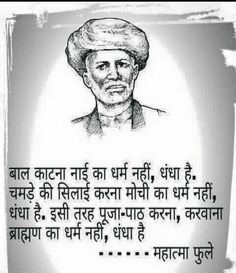 बाल काटना नाई का धर्म नहीं, धंधा है.
चमडे की सिलाई करना मोची का धर्म नहीं,
धंधा है. इसी तरह पूजा-पाठ करना, करवाना
ब्राह्मण का धर्म नहीं, धंधा है
- - - - - - महात्मा फुले